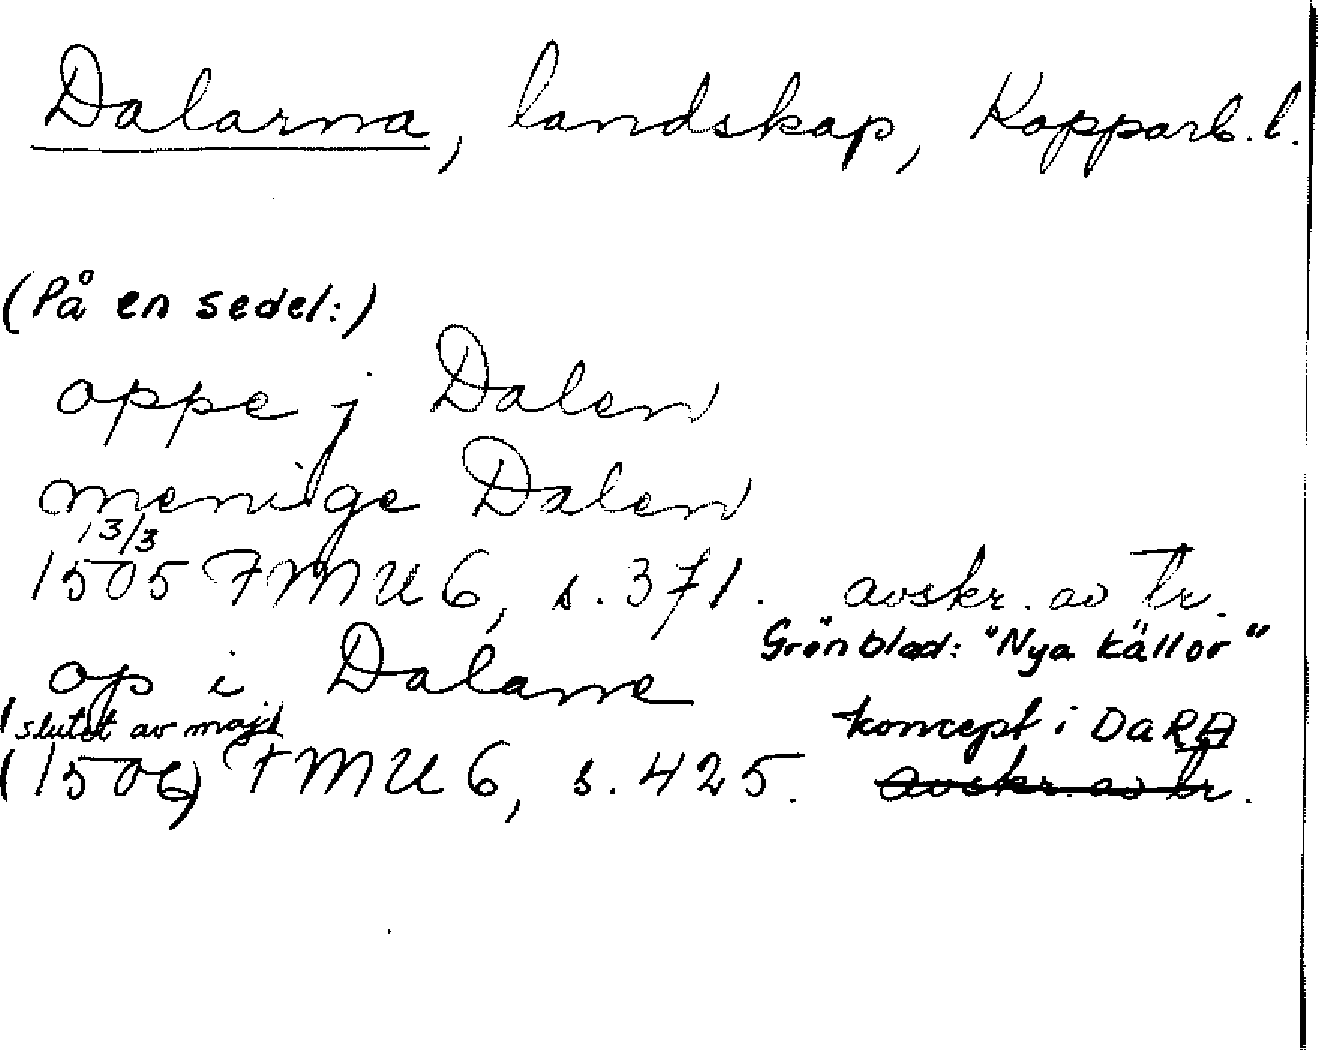 Dalarna, landskap, Kopparb. l.
(På en sedel:)
oppe j Dalen
menige Dalen
13/3
1505 FMU 6, s. 371. avskr. av tr.
Grönblad: "Nya källor"
op i Dalarne
slutet av maj
koncept i DaRA
(1506) FMU 6, s. 425. avskr. av tr.